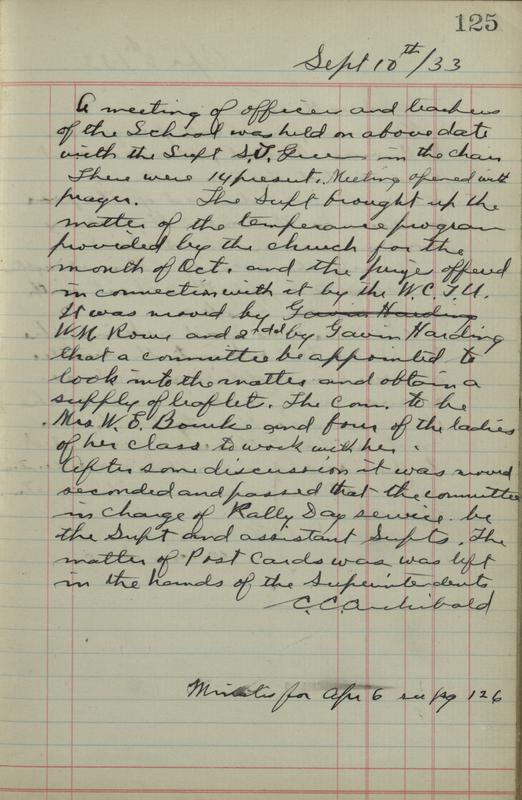 125
Sept 10th/33
A meeting of officers and teachers
of the School was held on above date
with the Supt S.T. Green in the chair
There were 14 present. Meeting opened with
prayer. The Supt brought up the
matter of the temperance program
provided by the church for the
month of Oct. and the prizes offered
in connection with it by the W.C.T.U.
It was moved by Gavin Harding
W.N. Rowe and 2nded by Gavin Harding
that a committee be appointed to
look into the matter and obtain a
supply of leaflet. The com. to be
Mrs. W. E. Bourke and four of the ladies
of her class to work with her.
After some discussion it was moved
seconded and passed that the committee
in charge of Rally Day service be
the Supt and assistant Supts. The
matter of Post Cards was was left
in the hands of the Superintendents
C.C. Archibald
Minutes for Apr 6 see pg 126